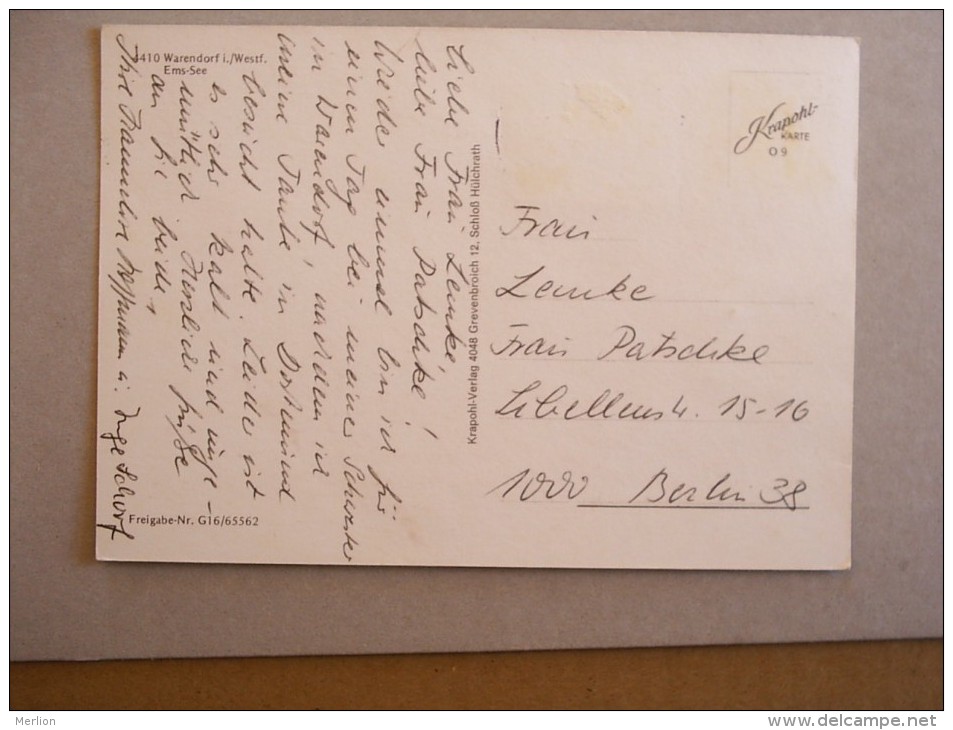 4410 Warendorf i./Westf.
Ems-See
Liebe Frau Lemke,
liebe Frau Patschke!
Wieder einmal bin ich für
einen Tag bei meiner Schwester
in Warendorf, nachdem ich
meine Tante in Dortmund
besucht hatte. Leider ist
es sehr kalt und unge-
mütlich. Herzliche Grüße
an Sie beide,
Ihre Hannelore u. Inge Schorf
Freigabe-Nr. G16/65562
Krapohl-Verlag 4048 Grevenbroich 12, Schloß Hülchrath
Krapohl-
KARTE
09
Frau
Lemke
Frau Patschke
Libellenstr. 15-16
1000 Berlin 38
Merlion
http://www.delcampe.net